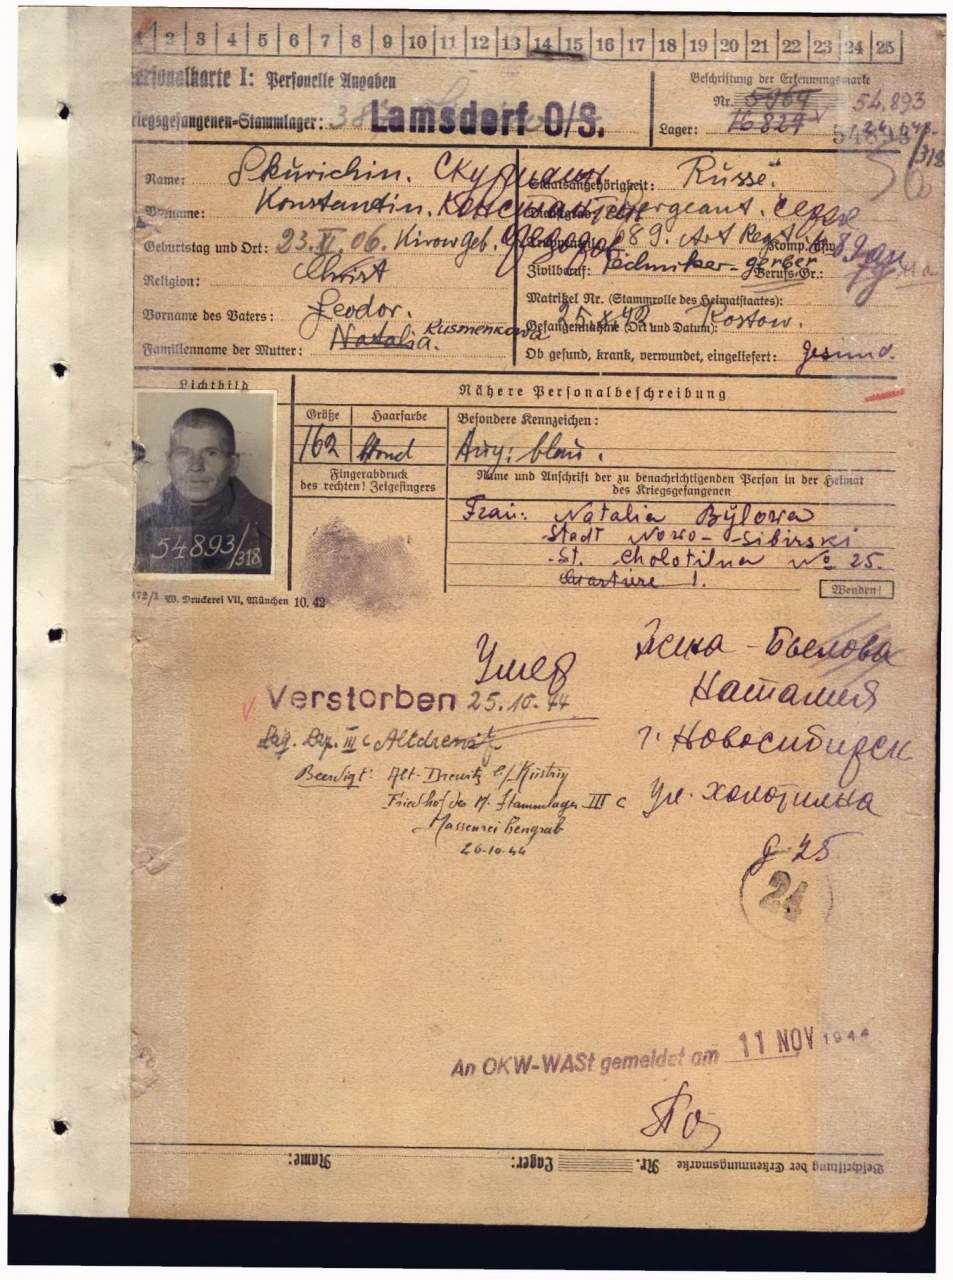 1 2 3 4 5 6 7 8 9 10 11 12 13 14 15 16 17 18 19 20 21 22 23 24 25
Personalkarte I: Personelle Angaben
Beschriftung der Erkennungsmarke
Kriegsgefangenen-Stammlager: Lamsdorf O/S.
Nr. 5969 54.893
Lager: 16 827
/318
Name: Skurichin.
Staatsangehörigkeit: Russe.
Vorname: Konstantin. Константин
Sergeant.
Geburtstag und Ort: 23. XI. 06. Kirow geb.
89. Art Regt. Komp.
Religion: Christ
Zivilberuf: Techniker-gerber Berufs-Gr.:
Matrikel Nr. (Stammrolle des Heimatstaates):
Vorname des Vaters: Feodor.
Gefangennahme (Ort und Datum): 25. X. 42 Rostow.
Familienname der Mutter: Natalia. Kusmenkowa
Ob gesund, krank, verwundet, eingeliefert: gesund.
Lichtbild
Nähere Personalbeschreibung
Größe Haarfarbe Besondere Kennzeichen:
162 blond Aug: blau.
Fingerabdruck
des rechten! Zeigefingers
Name und Anschrift der zu benachrichtigenden Person in der Heimat
des Kriegsgefangenen
Frau: Natalia Bylowa
Stadt Nowo-Sibirski
St. Cholotilna No 25.
Quartiere 1.
54893/318
Wenden!
W. Druckerei VII, München 10. 42
Умер
Жена - Быелова
Наталия
г. Новосибирск
ул. холотилна
д 25
Verstorben 25.10.44
III c Altdrewitz
Beerdigt: Alt-Drewitz b/Küstrin
Friedhof des M. Stammlager III c
Massenreihengrab
26.10.44
24
An OKW-WASt gemeldet am 11 NOV 1944
Beschriftung der Erkennungsmarke Nr. Lager: Name: